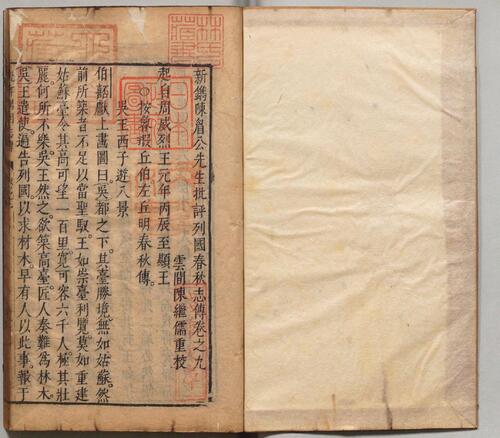 新鐫陳眉公先生批評列國春秋志傳卷之九
雲間陳繼儒重校
起自周威烈王元年丙辰至顯王
○按魯瑕丘伯左丘明春秋傳
吳王西子遊八景
伯嚭獻上畫圖曰吳都之下其臺勝境無如姑蘇然
前所築者不足以當聖馭王如崇臺利覽莫如重建
姑蘇臺令其高可望一百里寬可容六千人極其壯
麗何所不樂吳王然之欲築高臺匠人奏難為林木
吳王遣使過告列國以求材木早有人以此事報于
林氏藏書
日本